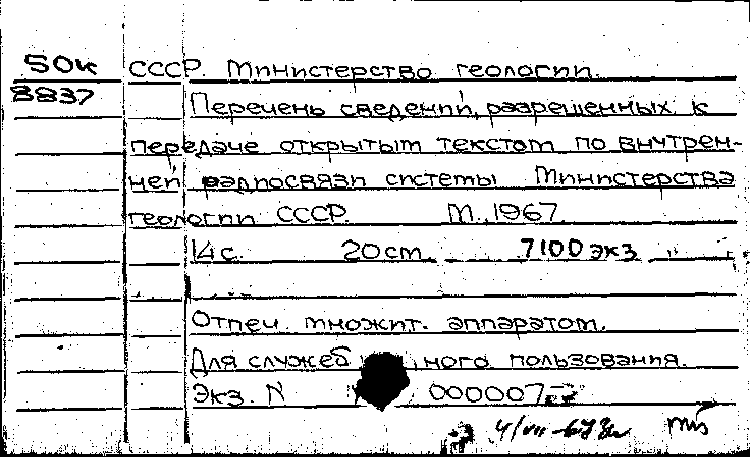 50к СССР. Министерство геологии.
8837 Перечень сведений, разрешенных к
передаче открытым текстом по внутрен-
ней радиосвязи системы Министерства
геологии СССР. М., 1967.
14 с. 20 см. 7100 экз.
Отпеч. множит. аппаратом.
Для служебного пользования.
Экз. N 000007